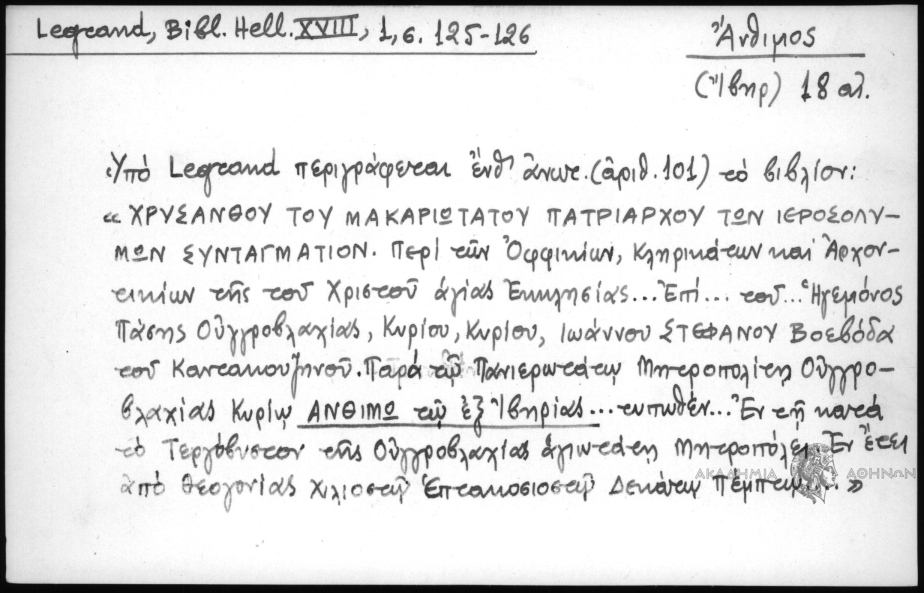 Legrand, Bibl. Hell. XVIII, 1, σ. 125-126
Ἄνθιμος
(Ἴβηρ) 18 αἰ.
Ὑπό Legrand περιγράφεται ἔνθ' ἀνωτ. (ἀριθ. 101) τό βιβλίον:
« ΧΡΥΣΑΝΘΟΥ ΤΟΥ ΜΑΚΑΡΙΩΤΑΤΟΥ ΠΑΤΡΙΑΡΧΟΥ ΤΩΝ ΙΕΡΟΣΟΛΥ-
ΜΩΝ ΣΥΝΤΑΓΜΑΤΙΟΝ. Περί τῶν Ὀφφικίων, Κληρικάτων καί Ἀρχον-
τικίων τῆς τοῦ Χριστοῦ ἁγίας Ἐκκλησίας... Ἐπί... τοῦ... Ἡγεμόνος
Πάσης Οὐγγροβλαχίας, Κυρίου, Κυρίου, Ἰωάννου ΣΤΕΦΑΝΟΥ Βοεβόδα
τοῦ Καντακουζηνοῦ. Παρά τῷ Πανιερωτάτῳ Μητροπολίτῃ Οὐγγρο-
βλαχίας Κυρίῳ ΑΝΘΙΜΩ τῷ ἐξ Ἰβηρίας... τυπωθέν... Ἐν τῇ κατά
τό Τεργόβυστον τῆς Οὐγγροβλαχίας ἁγιωτάτῃ Μητροπόλει. Ἐν ἔτει
ἀπό θεογονίας χιλιοστῷ Ἑπτακοσιοστῷ Δεκάτῳ Πέμπτῳ... »
ΑΚΑΔΗΜΙΑ ΑΘΗΝΩΝ